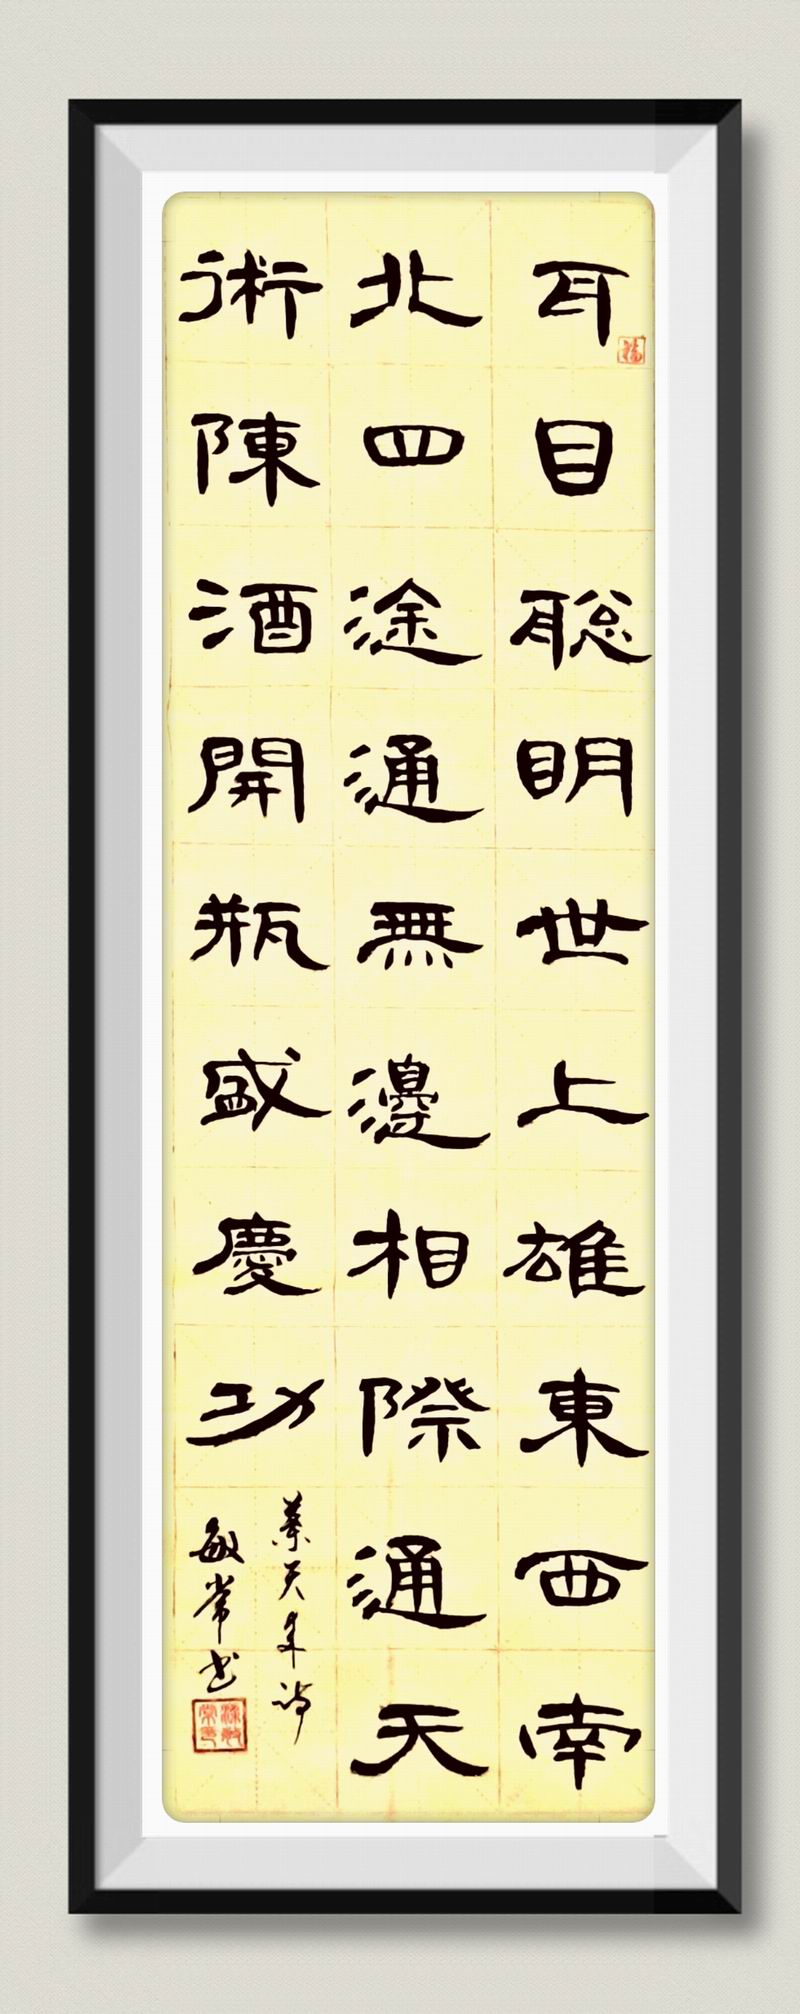 耳目聪明世上雄東西南
北四途通無邊相際通天
術陳酒開瓶盛慶功
蔡天年诗
敏常书
福